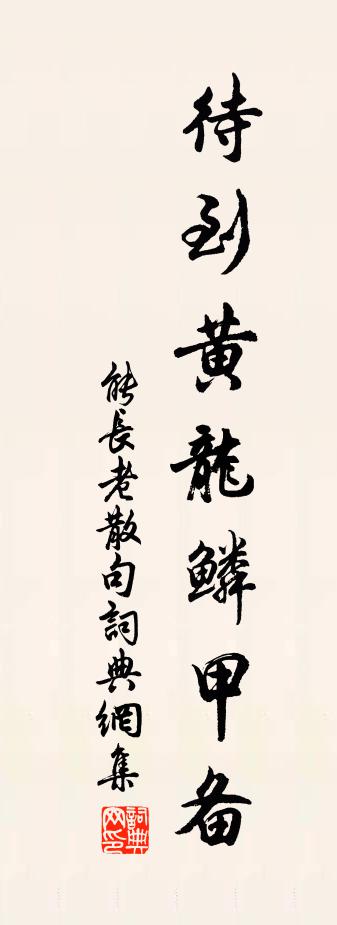 待到黄龍鱗甲备
能長老散句詞典網集
詞典网印